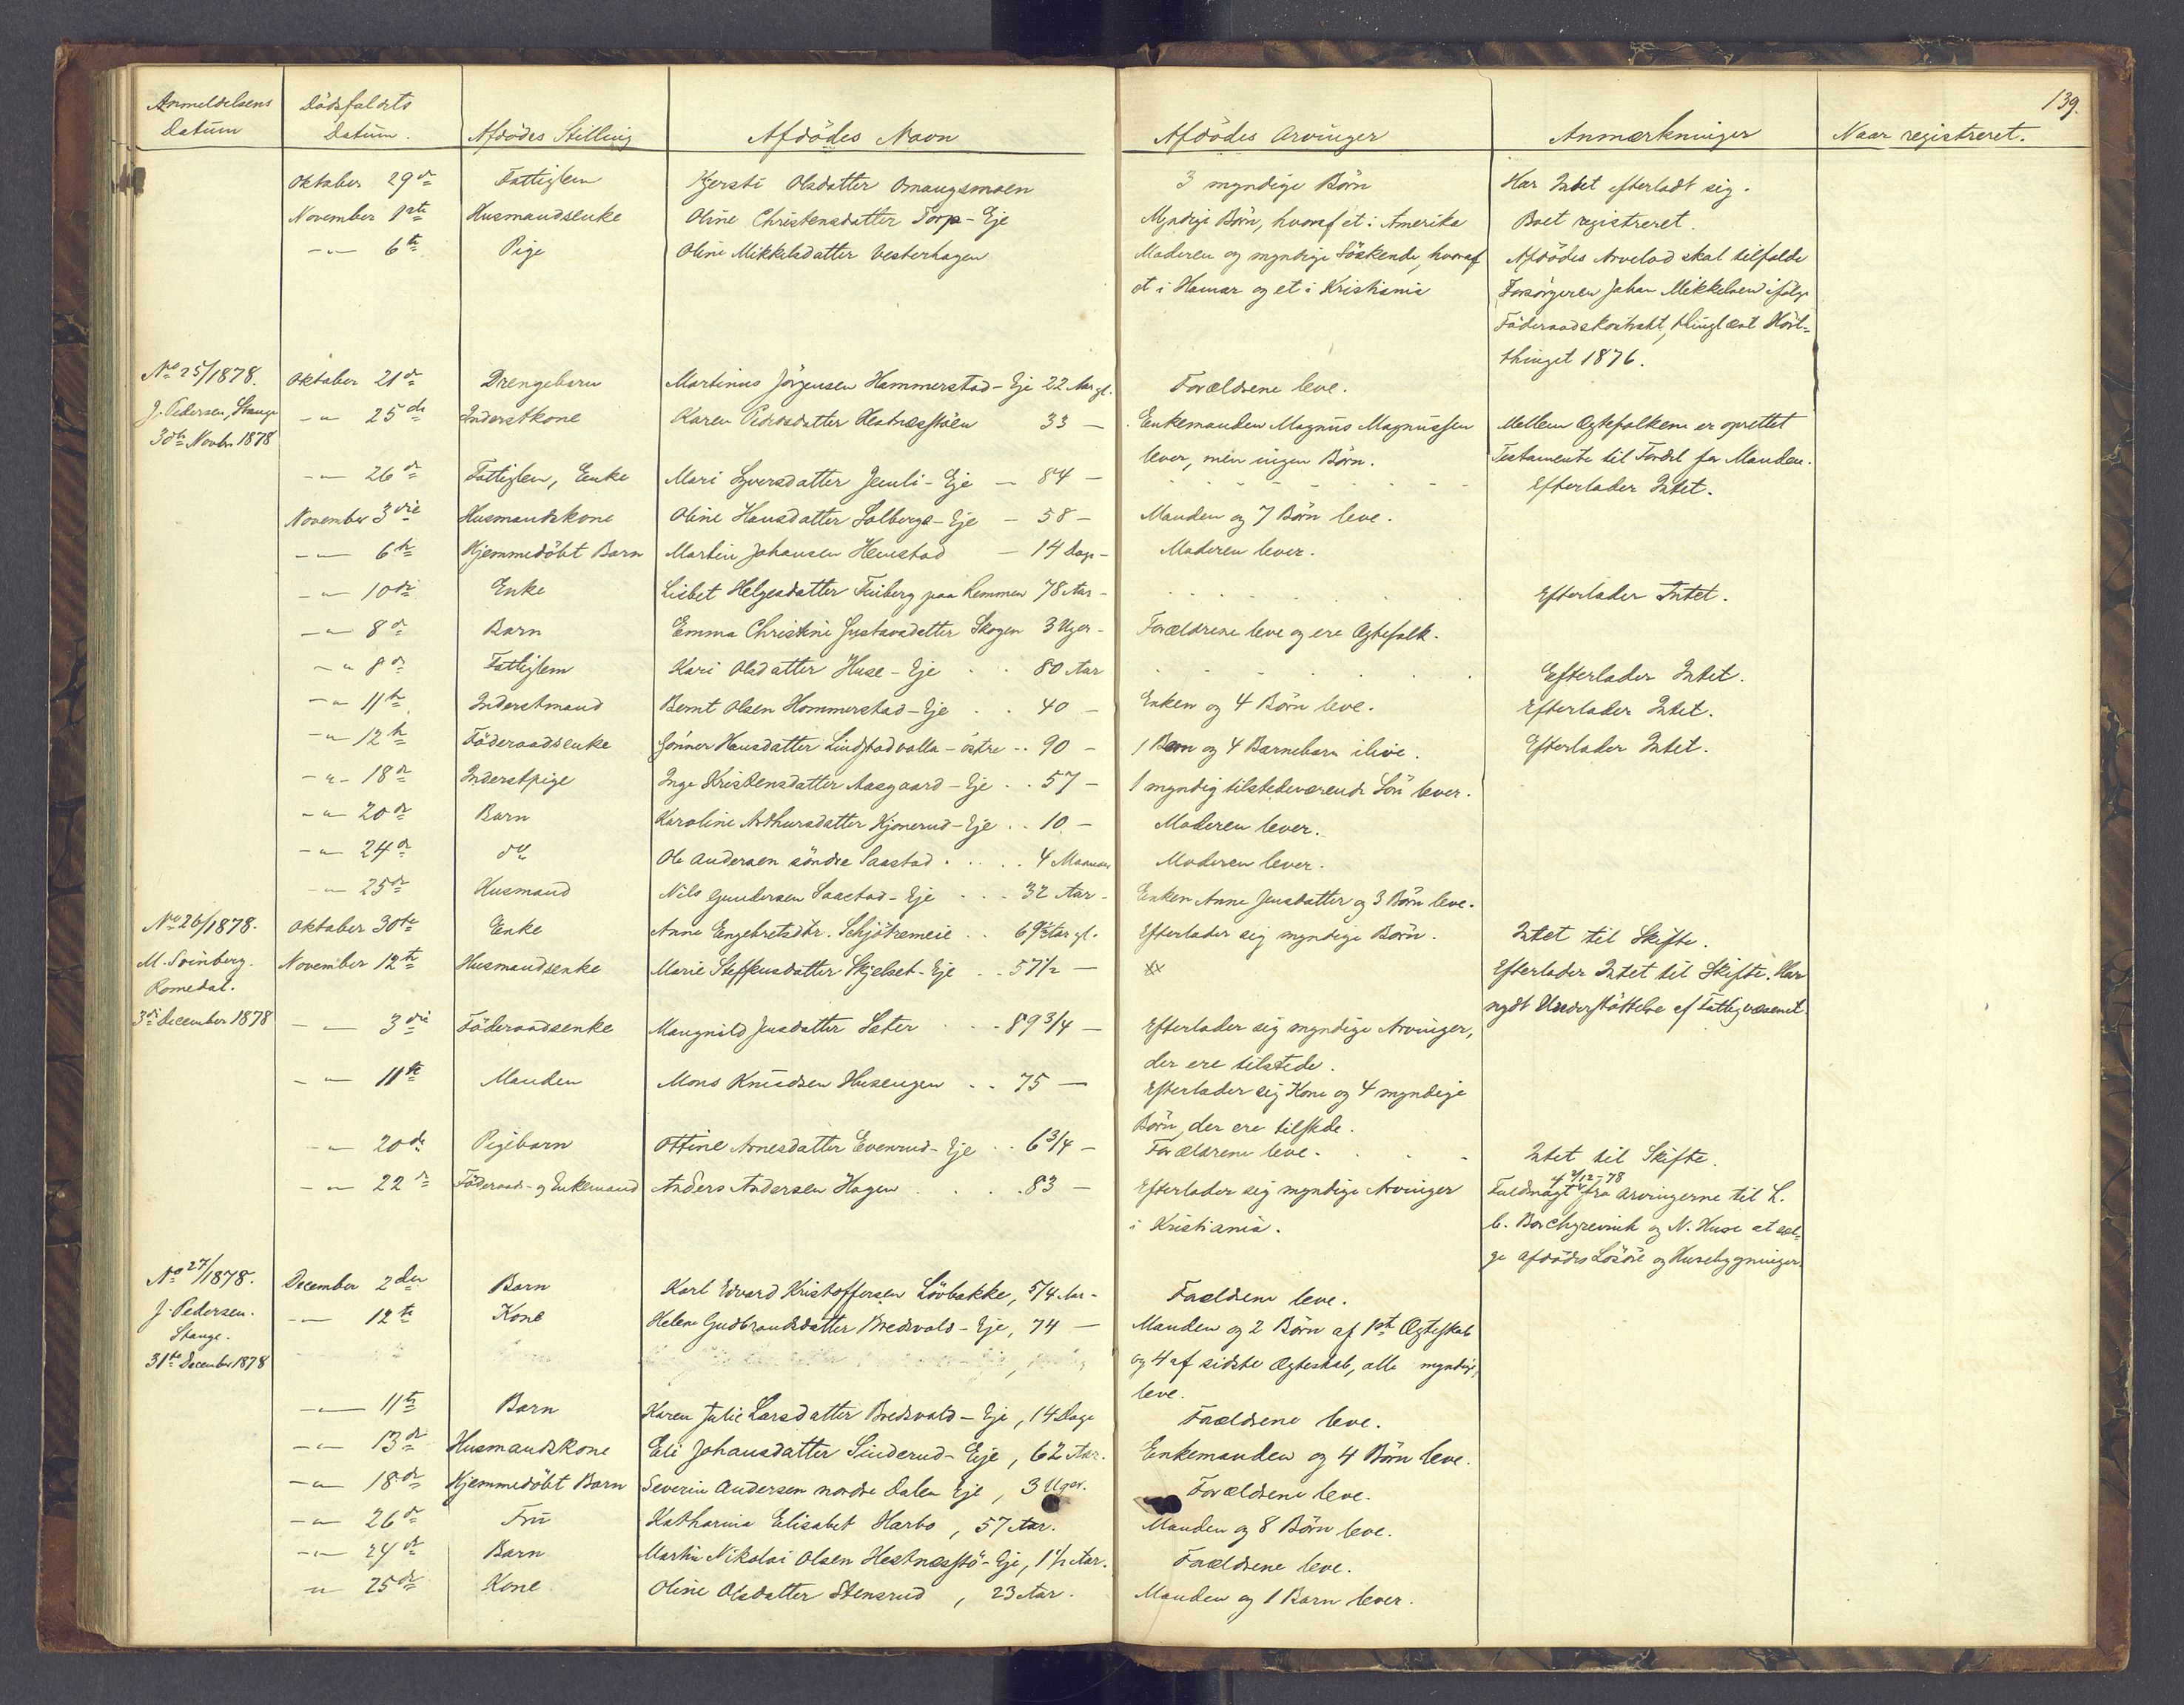 139.
Anmeldelsens Datum | Dödsfaldets Datum. | Afdödes Stilling | Afdödes Navn | Afdödes Arvinger | Anmærkninger | Naar registreret.
Oktober 29de | Fattiglem | Kjersti Olsdatter Omangsmoen | 3 myndige Börn | Har Intet efterladt sig.
November 1ste | Husmandsenke | Oline Christensdatter Torp-Eje | Myndige Börn, hvoraf et i Amerika | Boet registreret.
-"- 6te | Pige | Oline Mikkelsdatter Vesterhagen | Moderen og myndige Söskende, hvoraf | Afdödes Arvelod skal tilfalde
et i Hamar og et i Kristiania | Forsörgeren Johan Mikkelsen ifölge
Föderaadskontrakt, thinglæst Höst-
thinget 1876.
No 25/1878. | Oktober 21de | Drengebarn | Martinus Jörgensen Hammerstad-Eje 22 Aar gl. | Forældrene leve.
J. Pedersen, Stange | -"- 25de | Inderstkone | Karen Pedersdatter Hestnæsstöen 33 — | Enkemanden Magnus Magnussen | Mellem Ægtefolkene er oprettet
30te Novbr 1878 | lever, men ingen Börn. | Testamente til Fordel for Manden.
-"- 26de | Fattiglem, Enke | Mari Syversdatter Jemli-Eje — 84 — | Efterlader Intet.
November 3die | Husmandskone | Oline Hansdatter Solberg-Eje — 58 — | Manden og 7 Börn leve.
-"- 6te | Hjemmedöbt Barn | Martin Johansen Hemstad — 14 Dage — | Moderen lever.
-"- 10de | Enke | Lisbet Helgesdatter Finberg paa Lemmen 78 Aar — | Efterlader Intet.
-"- 8de | Barn | Emma Christine Gustavsdatter Skogen 3 Uger — | Forældrene leve og ere Ægtefolk.
-"- 8de | Fattiglem | Kari Olsdatter Huse-Eje 80 Aar | Efterlader Intet.
-"- 11te | Inderstmand | Bernt Olsen Hommerstad-Eje 40 — | Enken og 4 Börn leve. | Efterlader Intet.
-"- 12te | Föderaadsenke | Gönner Hansdatter Lindstadvolla-östre 90 — | 1 Barn og 4 Barnebarn ilive. | Efterlader Intet.
-"- 18de | Inderstpige | Inge Kristensdatter Aasgaard-Eje 57 — | 1 myndig tilstedeværende Sön lever.
-"- 20de | Barn | Karoline Arthursdatter Kjonerud-Eje 10 — | Moderen lever.
-"- 24de | do | Ole Andersen söndre Saastad 4 Maaneder | Moderen lever.
-"- 25de | Husmand | Nils Gundersen Saastad-Eje 32 Aar — | Enken Anne Jensdatter og 3 Börn leve.
No 26/1878. | Oktober 30te | Enke | Anne Engebretsdtr. Schjötsmeie 69½ Aar gl. | Efterlader sig myndige Börn. | Intet til Skifte.
M. Svinberg. | November 12te | Husmandsenke | Marie Steffensdatter Skjelset-Eje 57½ — | Efterlader Intet til Skifte. Har
Romedal. | nydt Understöttelse af Fattigvæsenet.
3die December 1878 | -"- 3die | Föderaadsenke | Maugnild Jensdatter Sæter 89¾ — | Efterlader sig myndige Arvinger,
der ere tilstede.
-"- 11te | Manden | Mons Knudsen Husengen 75 — | Efterlader sig Kone og 4 myndige
Börn, der ere tilstede.
-"- 20de | Pigebarn | Ottine Arnesdatter Evenrud-Eje 6¾ — | Forældrene leve. | Intet til Skifte.
-"- 22de | Föderaads- og Enkemand | Anders Andersen Hagen 83 — | Efterlader sig myndige Arvinger | Fuldmagt af 2/12-78 fra Arvingerne til L.
i Kristiania. | C. Borchgrevink og N. Huse at sæl-
ge Afdödes Lösöre og Husebygninger.
No 27/1878. | December 2den | Barn | Karl Edvard Kristoffersen Lövbakke, 5/4 Aar — | Forældrene leve.
J. Pedersen. | -"- 12te | Kone | Helene Gudbrandsdatter Bredvold-Eje, 74 — | Manden og 2 Börn af 1ste Ægteskab
Stange.
31te December 1878 | og 4 af sidste Ægteskab, alle myndige,
leve.
-"- 11te | Barn | Karen Julie Larsdatter Bredvold-Eje, 14 Dage | Forældrene leve.
-"- 13de | Husmandskone | Eli Johansdatter Sinderud-Eje, 62 Aar. | Enkemanden og 4 Börn leve.
-"- 18de | Hjemmedöbt Barn | Severin Andersen nordre Dalen Eje, 3 Uger. | Forældrene leve.
-"- 26de | Fru | Katharina Elisabet Harbo, 57 Aar. | Manden og 8 Börn leve.
-"- 24de | Barn | Martin Nikolai Olsen Hestnæsstö-Eje, 1½ Aar. | Forældrene leve.
-"- 25de | Kone | Oline Olsdatter Stensrud, 23 Aar. | Manden og 1 Barn lever.